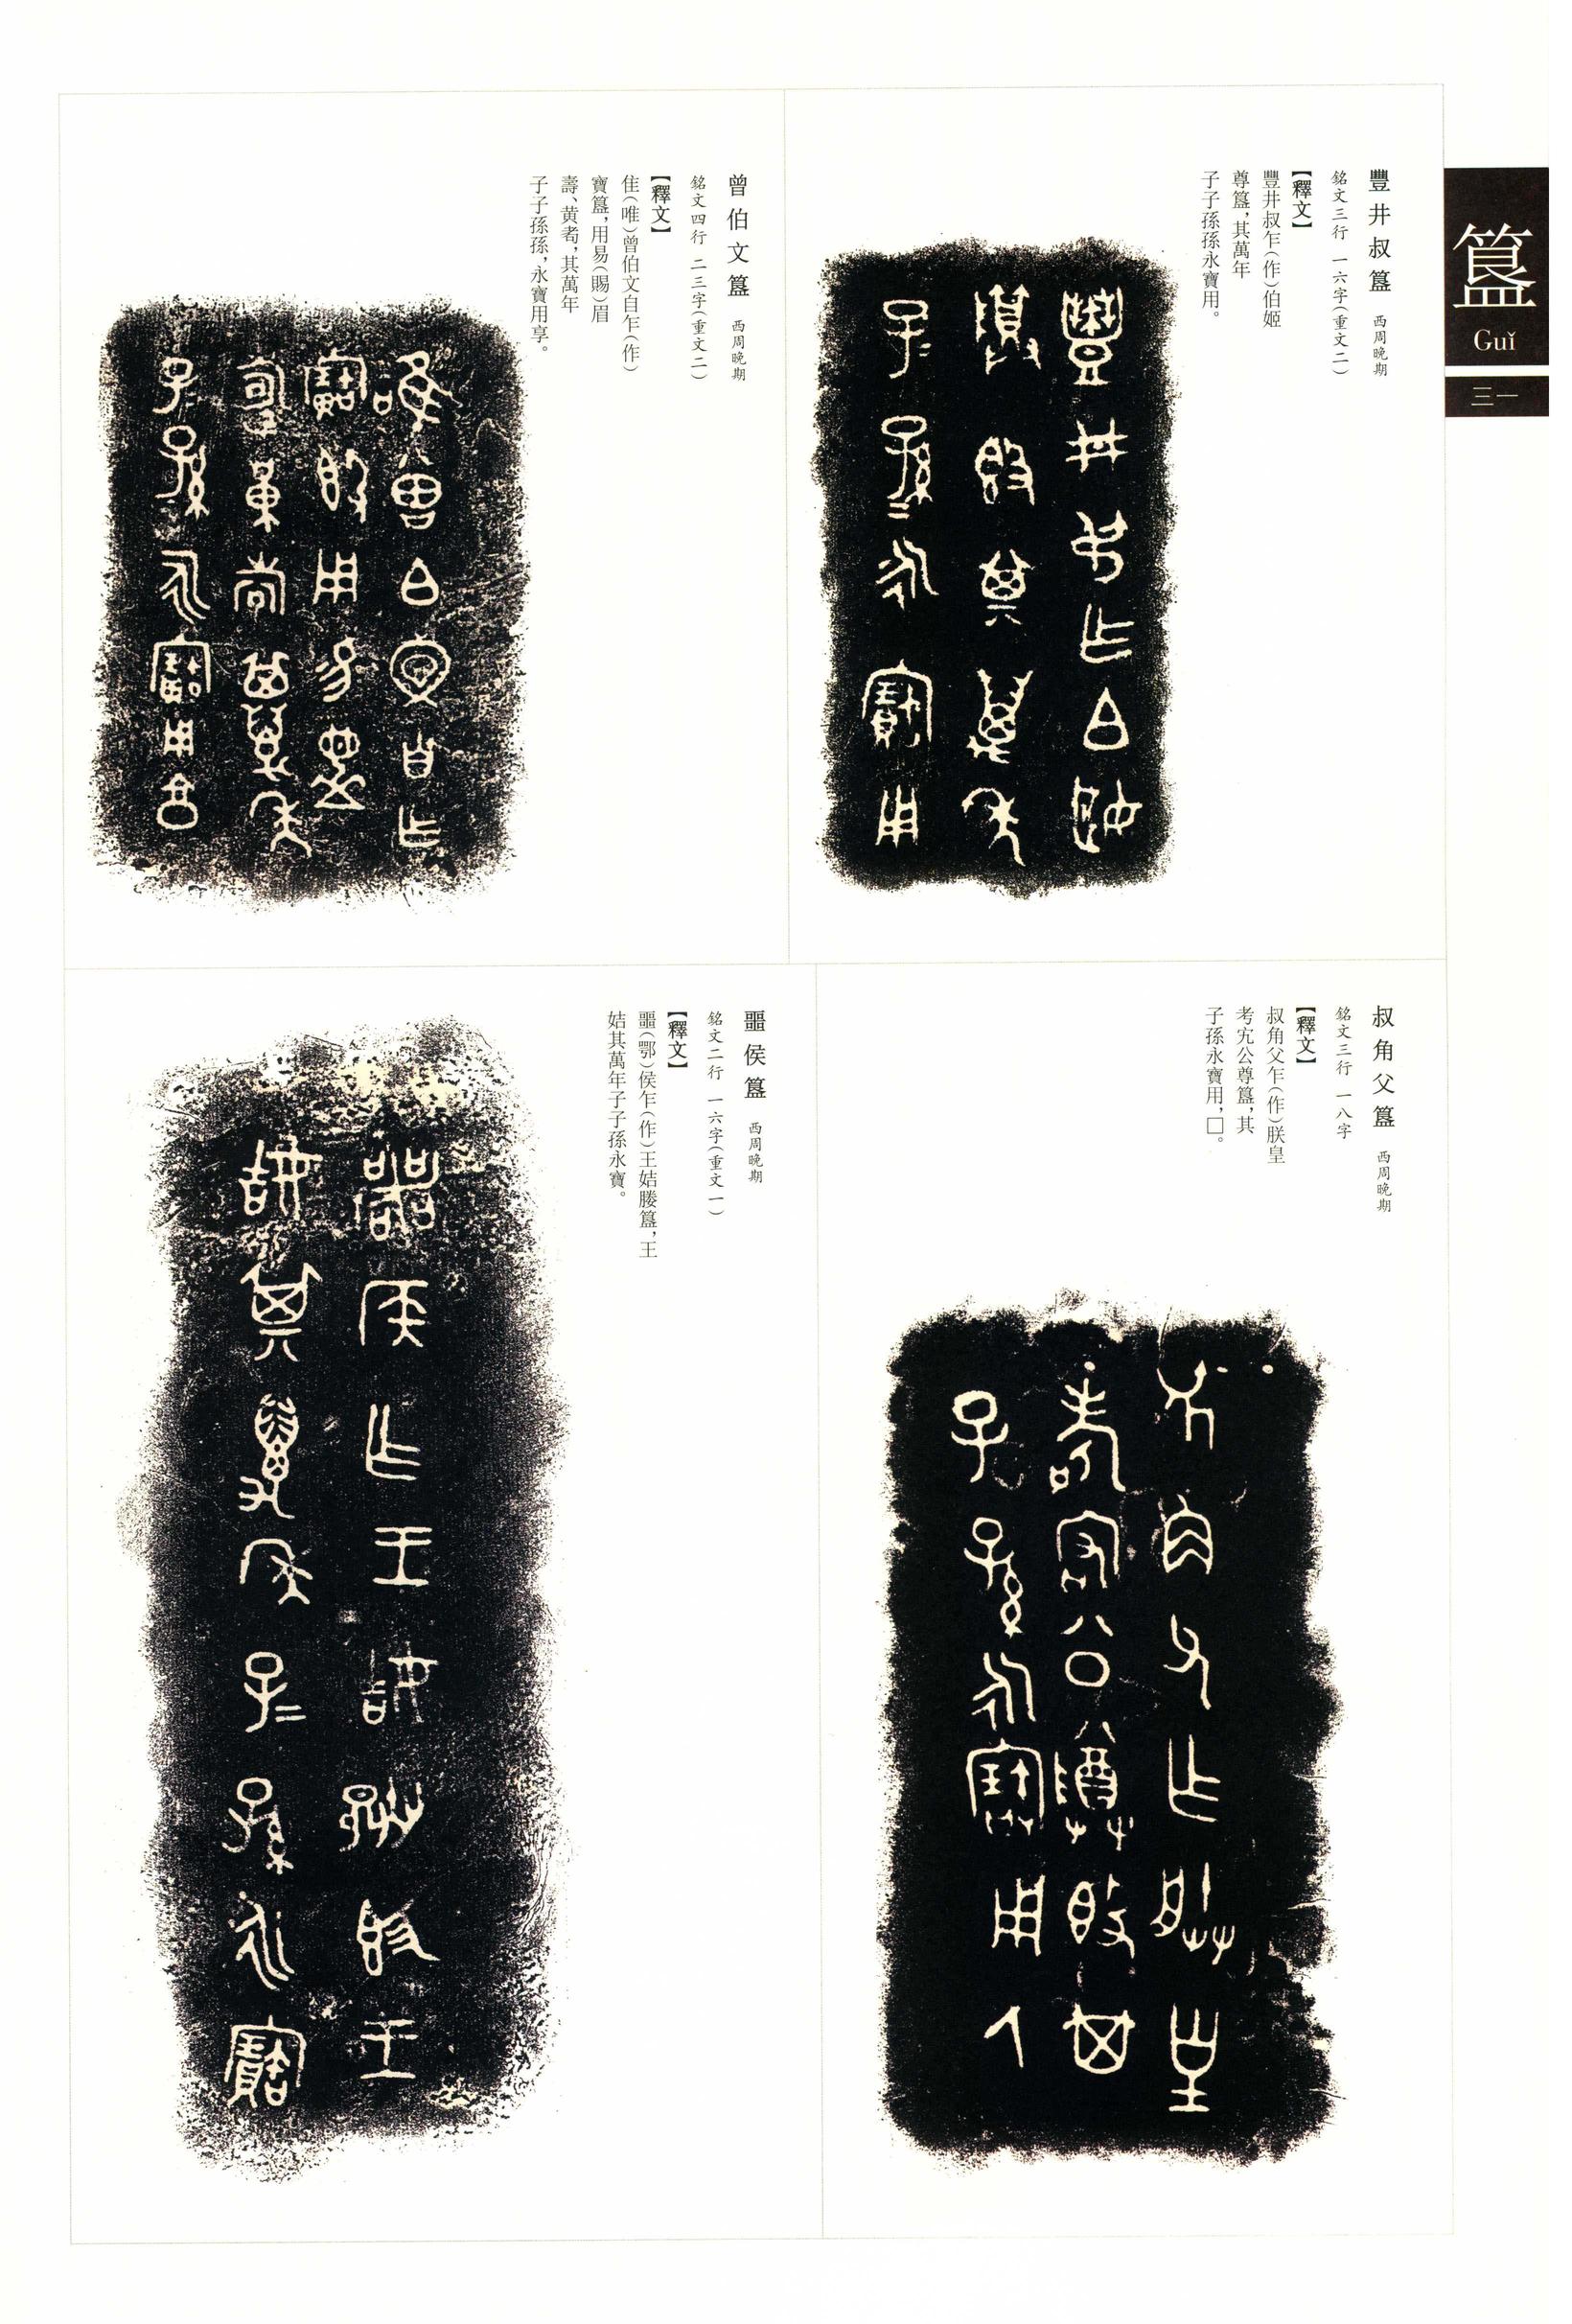 簋
Guǐ
三一
豐井叔簋 西周晚期
銘文三行 一六字(重文二)
【釋文】
豐井叔乍(作)伯姬
尊簋,其萬年
子子孫孫永寶用。
曾伯文簋 西周晚期
銘文四行 二三字(重文二)
【釋文】
隹(唯)曾伯文自乍(作)
寶簋,用易(賜)眉
壽、黄耇,其萬年
子子孫孫,永寶用享。
叔角父簋 西周晚期
銘文三行 一八字
【釋文】
叔角父乍(作)朕皇
考宄公尊簋,其
子孫永寶用,□。
噩侯簋 西周晚期
銘文二行 一六字(重文一)
【釋文】
噩(鄂)侯乍(作)王姞媵簋,王
姞其萬年子子孫永寶。